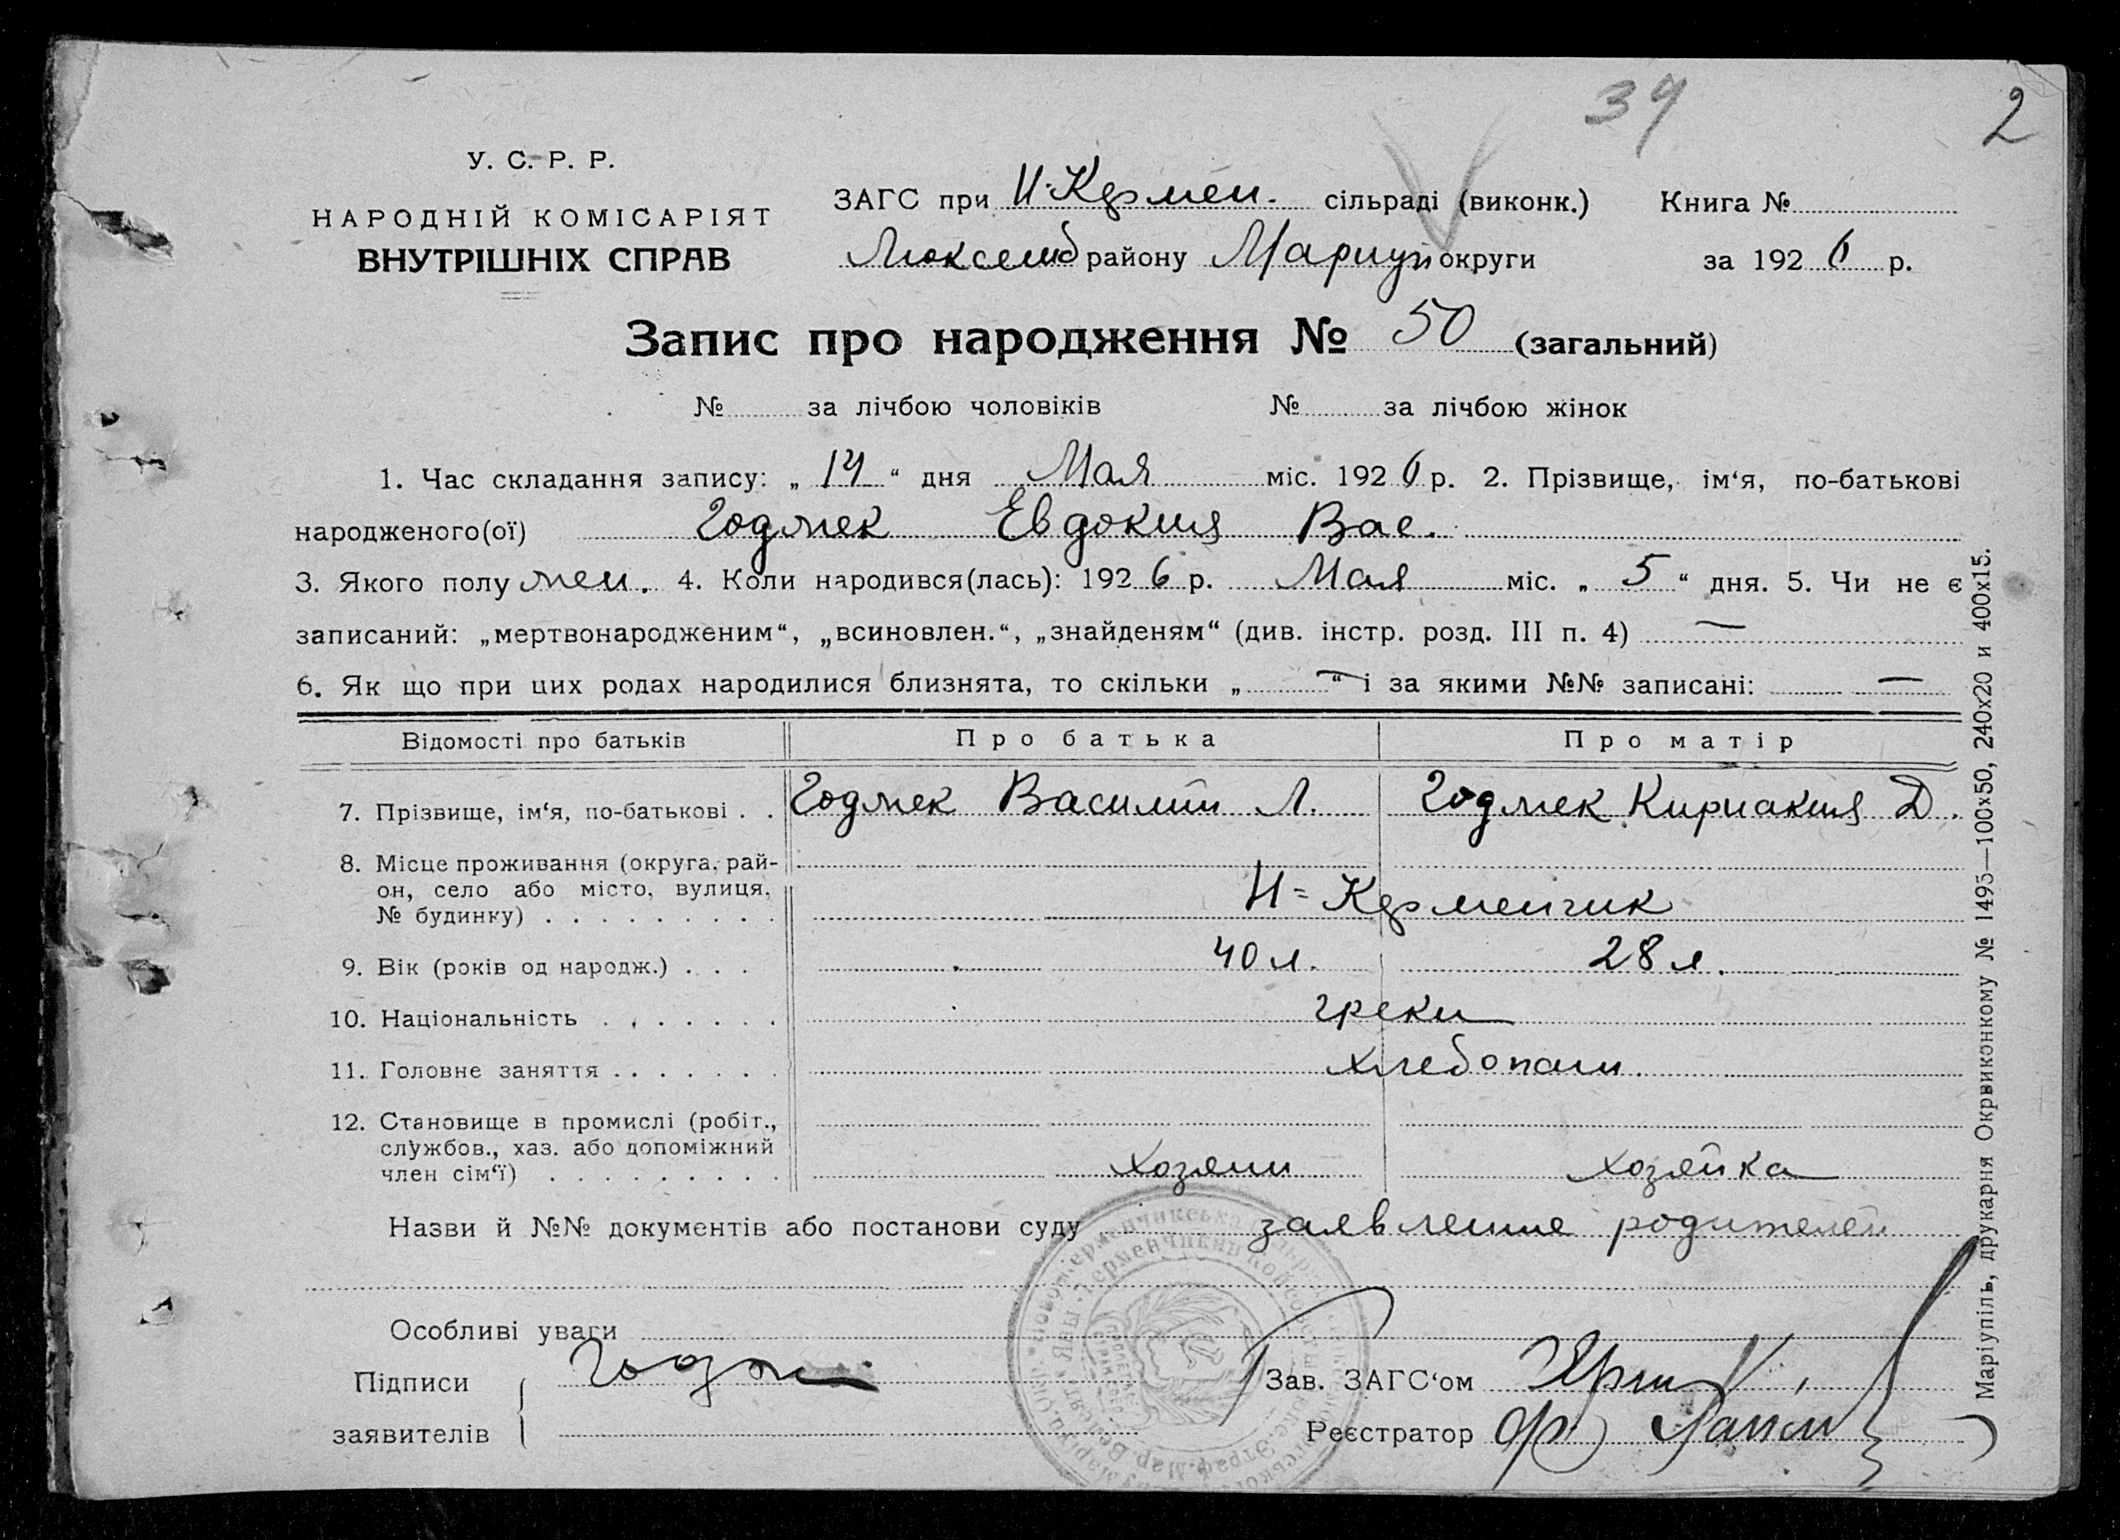 39
2
У. С. Р. Р.
НАРОДНІЙ КОМІСАРІЯТ
ВНУТРІШНІХ СПРАВ
ЗАГС при Н-Кермен. сільраді (виконк.) Книга №
Люксемб району Мариуп округи за 1926 р.
Запис про народження № 50 (загальний)
№ за лічбою чоловіків № за лічбою жінок
1. Час складання запису: „ 14 “ дня Мая міс. 1926 р. 2. Прізвище, ім‘я, по-батькові
народженого(ої) Годжек Евдокия Вас.
3. Якого полу жен. 4. Коли народився(лась): 1926 р. Мая міс. „ 5 “ дня. 5. Чи не є
записаний: „мертвонародженим“, „всиновлен.“, „знайденям“ (див. інстр. розд. III п. 4) —
6. Як що при цих родах народилися близнята, то скільки „ — “ і за якими №№ записані: —
Відомості про батьків Про батька Про матір
7. Прізвище, ім‘я, по-батькові . . Годжек Василий Л. Годжек Кириакия Д.
8. Місце проживання (округа, рай-
он, село або місто, вулиця,
№ будинку) . . . . . . . . . Н=Керменчик
9. Вік (років од народж.) . . . 40 л. 28 л.
10. Національність . . . . . . . греки
11. Головне заняття . . . . . . . хлебопаш.
12. Становище в промислі (робіт.,
службов., хаз. або допоміжний
член сім‘ї) . . . . . . . . . хозяин хозяйка
Назви й №№ документів або постанови суду заявление родителей
Особливі уваги
Підписи Годж
заявителів
Зав. ЗАГС‘ом
Реєстратор
Маріупіль, друкарня Окрвиконкому № 1495—100х50, 240х20 и 400х15.